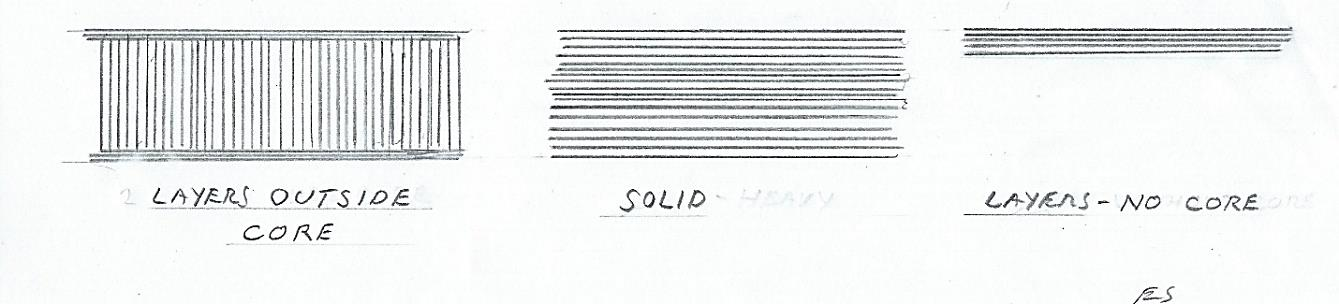 2 LAYERS OUTSIDE
CORE
SOLID - HEAVY
LAYERS - NO CORE
ES